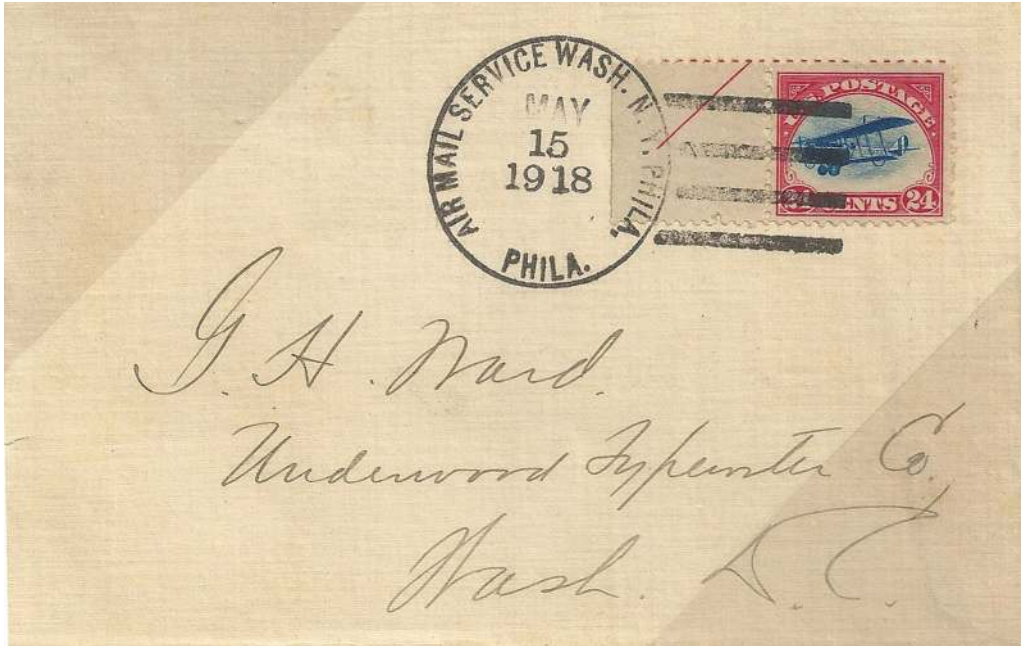 AIR MAIL SERVICE WASH. N.Y. PHILA.
MAY
15
1918
PHILA.
U.S. POSTAGE
24 CENTS 24
G. H. Ward.
Underwood Typewriter Co.
Wash. D.C.